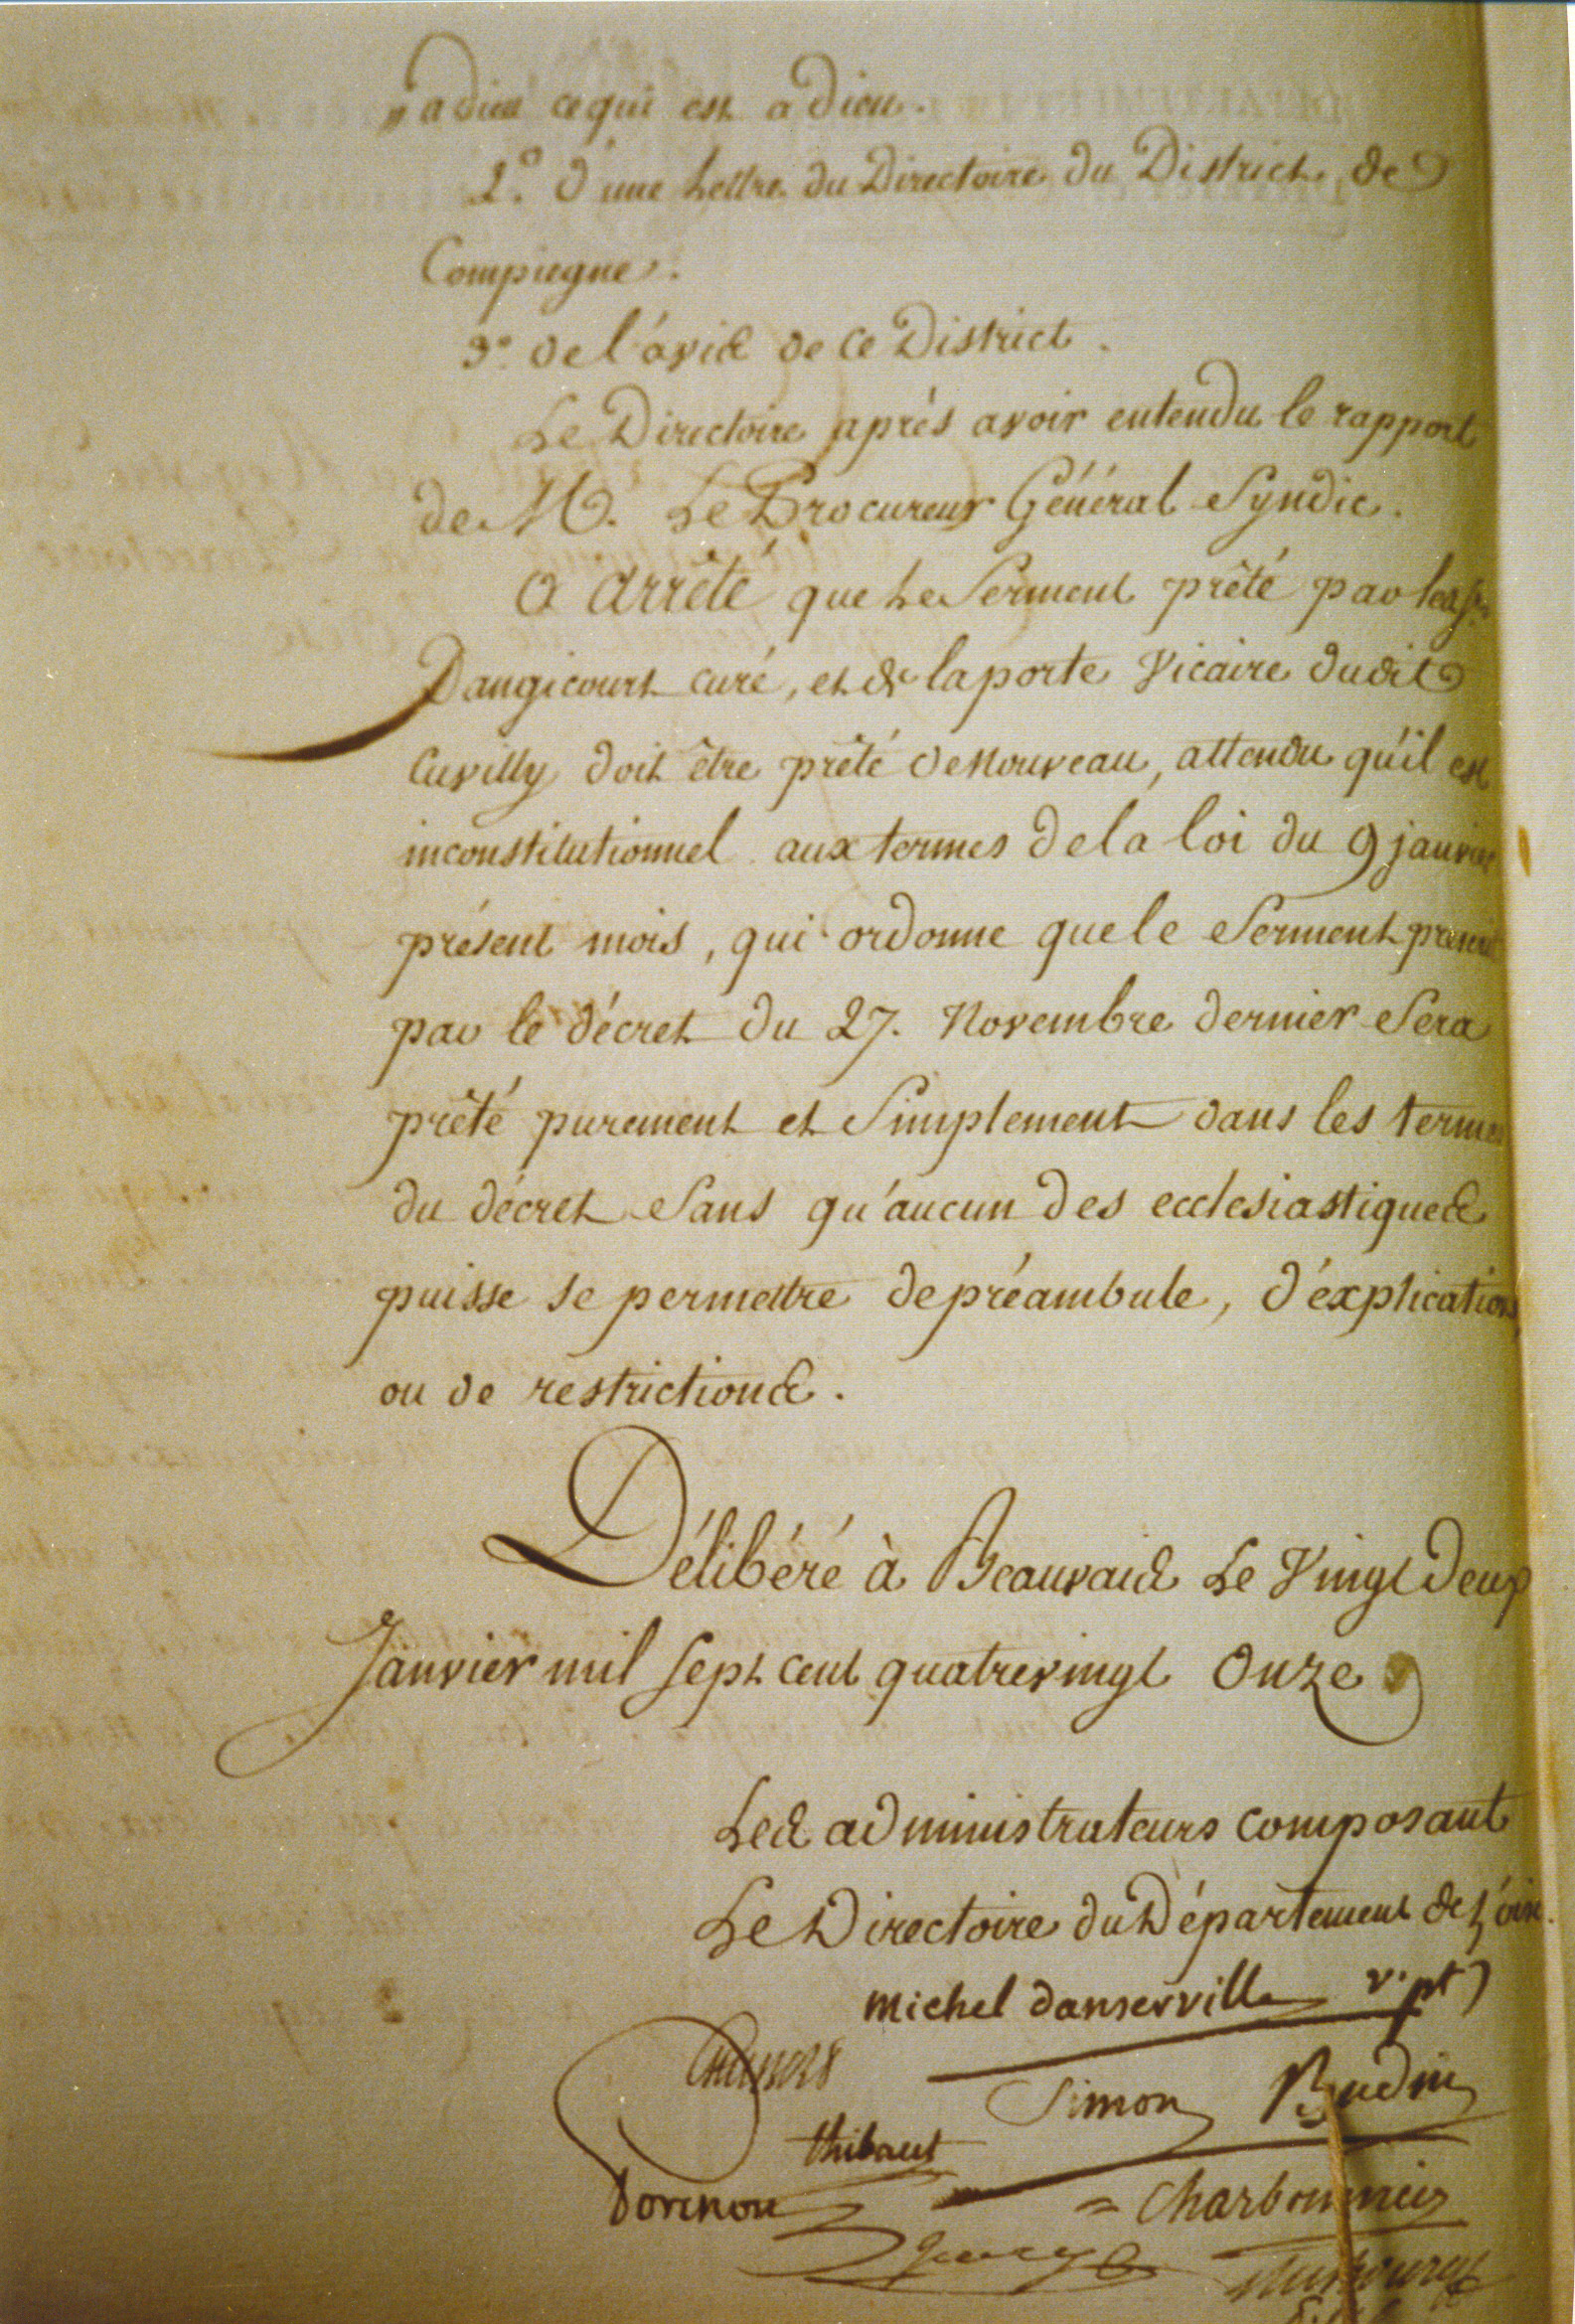 " a dieu ce qui est a Dieu.
2.° d'une Lettre du Directoire du District de
Compiegne.
3.° de l'avis de ce District.
Le Directoire après avoir entendu le rapport
de M. Le Procureur Général Syndic.
a arrêté que Le Serment prêté par les Srs
Dangicourt curé, et de laporte Vicaire dudit
Cuvilly doit être prêté de nouveau, attendu qu'il est
inconstitutionnel aux termes de la loi du 9 janvier
présent mois, qui ordonne que le Serment prescrit
par le décret du 27. Novembre dernier Sera
prêté purement et Simplement dans les termes
du décret Sans qu'aucun des ecclesiastiques
puisse se permettre de préambule, d'éxplications,
ou de restrictions.
Délibéré à Beauvais Le Vingt Deux
Janvier mil Sept cent quatrevingt Onze
Les administrateurs composant
Le Directoire du Département de L'oise.
michel danserville v. pt
Simon Budin
thibaut
Dorenou
Charbonnier